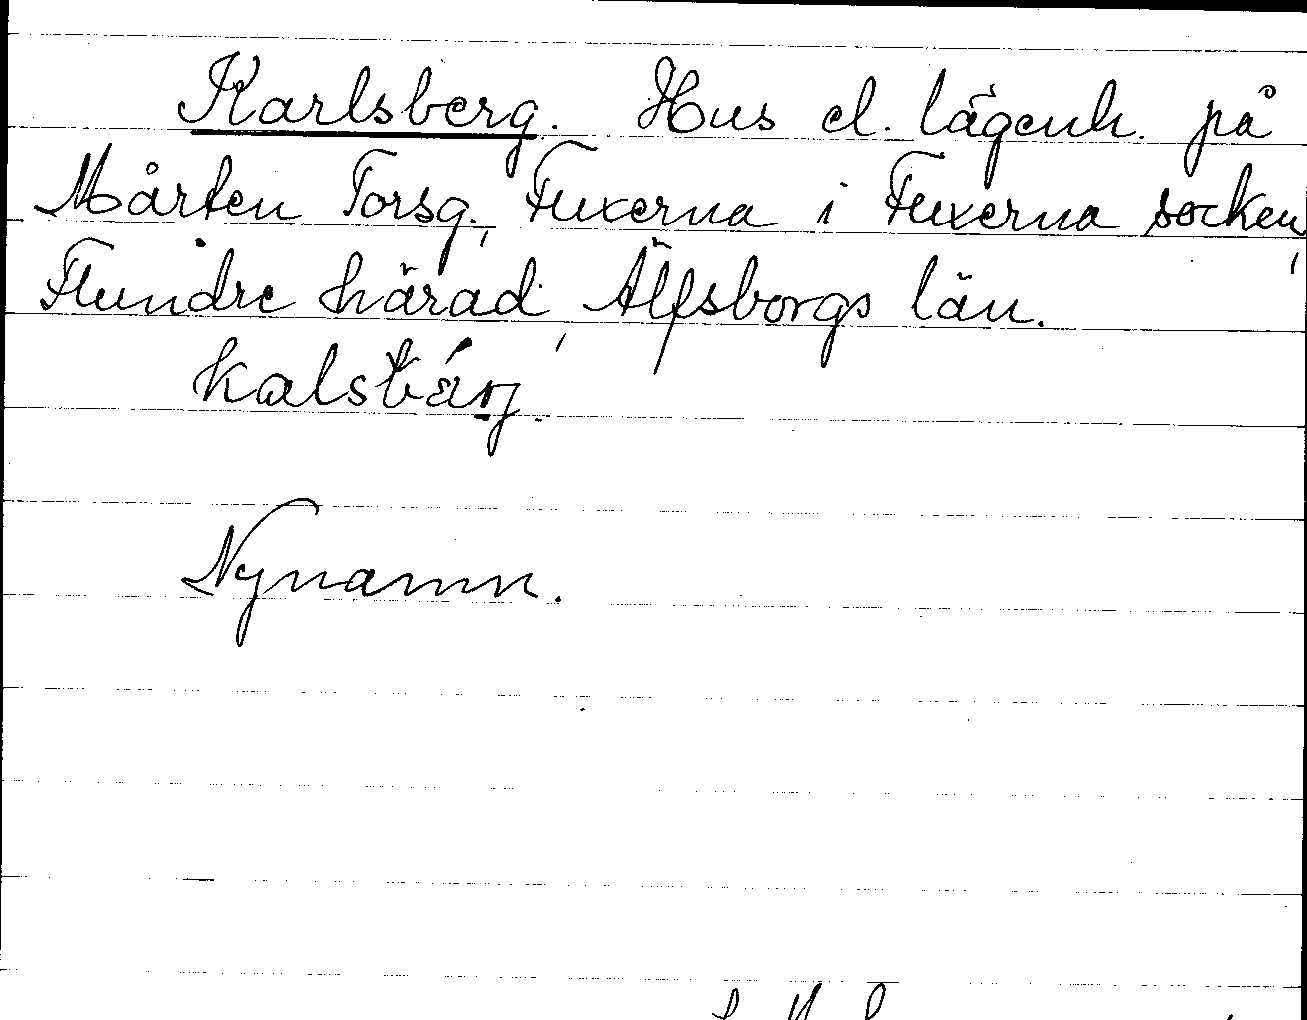 Karlsberg. Hus el. lägenh. på
Mårten Torsg., Fuxerna i Fuxerna socken,
Flundre härad, Älfsborgs län.
kalsbárj.
Nynamn.